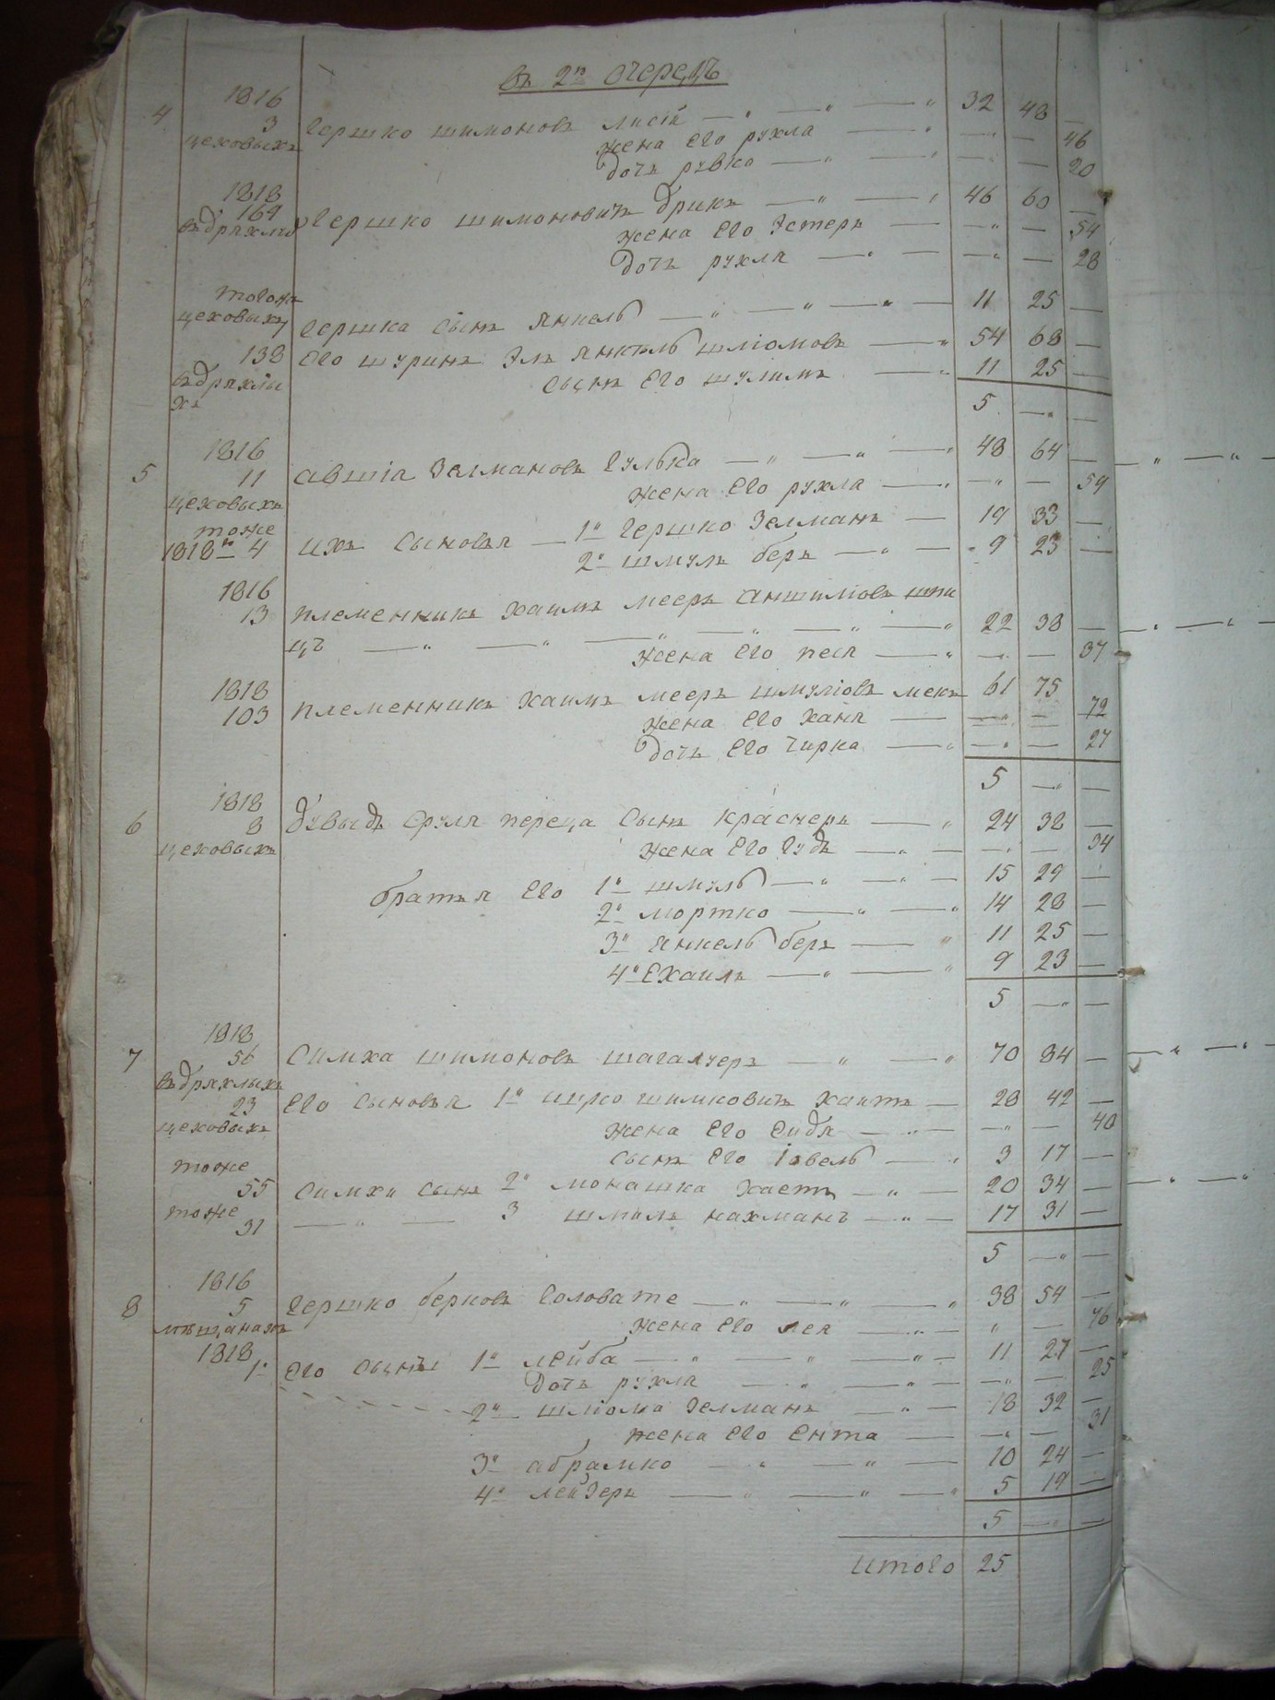 въ 2й очередъ
4 1816 3 цеховыхъ Гершко шимоновъ лисiй 32 48
жена Его рухла 46
дочъ ривка 20
1818 164 въ дряхлы Гершко шимоновичъ брикъ 46 60
жена Его Эстеръ 54
дочъ рухля 28
тогожъ цеховыхъ Гершка сынъ янкель 11 25
138 Его шуринъ Эль янкель шлiомовъ 54 68
въ дряхлы хъ сынъ Его шулимъ 11 25
5
5 1816 11 цеховыхъ авшiя Зелмановъ Гулька 48 64
жена Его рухла 59
тоже ихъ сыновья 1й Гершко Зелманъ 19 33
1818го 4 2й шмулъ беръ 9 23
1816 13 племенникъ хаимъ мееръ аншилiовъ шпи
цъ 22 38
жена Его песя 37
1818 103 племенникъ хаимъ мееръ шмулiовъ мекъ 61 75
жена Его ханя 72
дочъ Его чирка 27
5
6 1818 8 цеховыхъ дувыдъ сруля переца сынъ краснеръ 24 38
жена Его Гудъ 34
братья Его 1й шмуль 15 29
2й мортко 14 28
3й янкель беръ 11 25
4й Ехаилъ 9 23
5
7 1818 56 въ дряхлыхъ Симха шимоновъ шагалуеръ 70 84
23 цеховыхъ Его сыновья 1й ицко шимковичъ хаитъ 28 42
жена Его сидя 40
сынъ Его Iовель 3 17
тоже 55 Симхи сынъ 2й монашка хаетъ 20 34
тоже 31 3 шмиль нахманъ 17 31
5
8 1816 5 мѣщанахъ Гершко берковъ Соловате 38 54
жена Его лея 46
1818 1й Его сынъ 1й лейба 11 27
дочъ рухля 25
2й шлiома Зелманъ 18 32
жена Его Ента 31
3й абрамко 10 24
4й лейЗеръ 5 19
5
итого 25